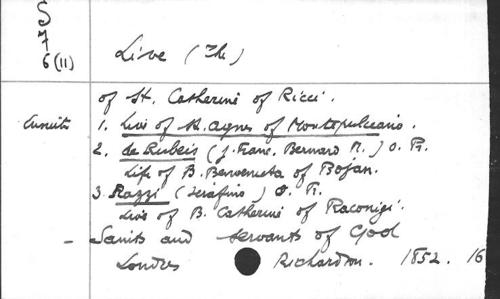 S
7
6 (11)
Live (The)
of St. Catherine of Ricci.
1. Live of St. Agnes of Montepulciano.
2. de Rubeis (J. Franc. Bernard M.) O. Pr.
Life of B. Benvenuta of Bojan.
3. Razzi (Serafino) O. Pr.
Live of B. Catherine of Raconigi.
- Saints and servants of God
Londres Richardson. 1852. 16